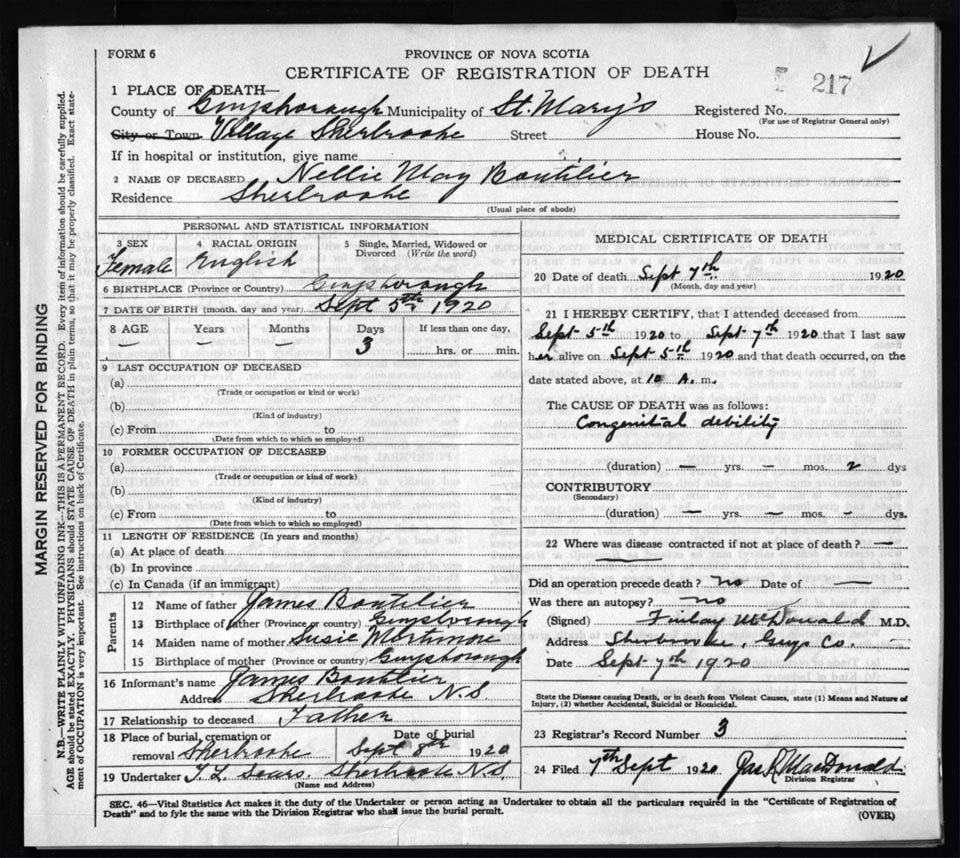 FORM 6
PROVINCE OF NOVA SCOTIA
CERTIFICATE OF REGISTRATION OF DEATH
217
1 PLACE OF DEATH—
County of Guysborough Municipality of St. Mary's Registered No.
(For use of Registrar General only)
City or Town Village Sherbrooke Street House No.
If in hospital or institution, give name
2 NAME OF DECEASED Nellie May Boutilier
Residence Sherbrooke
(Usual place of abode)
PERSONAL AND STATISTICAL INFORMATION
3 SEX 4 RACIAL ORIGIN 5 Single, Married, Widowed or
Divorced (Write the word)
Female English
6 BIRTHPLACE (Province or Country) Guysborough
7 DATE OF BIRTH (month, day and year) Sept 5th 1920
8 AGE Years Months Days If less than one day,
— — — 3 hrs. or min.
9 LAST OCCUPATION OF DECEASED
(a)
(Trade or occupation or kind or work)
(b)
(Kind of industry)
(c) From to
(Date from which to which so employed)
10 FORMER OCCUPATION OF DECEASED
(a)
(Trade or occupation or kind of work)
(b)
(Kind of industry)
(c) From to
(Date from which to which so employed)
11 LENGTH OF RESIDENCE (In years and months)
(a) At place of death
(b) In province
(c) In Canada (if an immigrant)
Parents
12 Name of father James Boutilier
13 Birthplace of father (Province or country) Guysborough
14 Maiden name of mother Susie Mortimore
15 Birthplace of mother (Province or country) Guysborough
16 Informant's name James Boutilier
Address Sherbrooke N.S
17 Relationship to deceased Father
18 Place of burial, cremation or Date of burial
removal Sherbrooke Sept 8th 1920
19 Undertaker T L Sears. Sherbrooke N.S
(Name and Address)
MEDICAL CERTIFICATE OF DEATH
20 Date of death Sept 7th 1920
(Month, day and year)
21 I HEREBY CERTIFY, that I attended deceased from
Sept 5th 1920 to Sept 7th 1920 that I last saw
her alive on Sept 5th 1920 and that death occurred, on the
date stated above, at 10 A. m.
The CAUSE OF DEATH was as follows:
Congenital debility
(duration) — yrs. — mos. 2 dys
CONTRIBUTORY
(Secondary)
(duration) — yrs. — mos. - dys.
22 Where was disease contracted if not at place of death? —
Did an operation precede death? no Date of —
Was there an autopsy? no
(Signed) Finlay McDonald M.D.
Address Sherbrooke, Guys Co.
Date Sept 7th 1920
State the Disease causing Death, or in death from Violent Causes, state (1) Means and Nature of
Injury, (2) whether Accidental, Suicidal or Homicidal.
23 Registrar's Record Number 3
24 Filed 7th Sept 1920 Jas R MacDonald
Division Registrar
SEC. 46—Vital Statistics Act makes it the duty of the Undertaker or person acting as Undertaker to obtain all the particulars required in the "Certificate of Registration of
Death" and to fyle the same with the Division Registrar who shall issue the burial permit.
(OVER)
MARGIN RESERVED FOR BINDING
N.B.—WRITE PLAINLY WITH UNFADING INK—THIS IS A PERMANENT RECORD. Every item of information should be carefully supplied.
AGE should be stated EXACTLY. PHYSICIANS should STATE CAUSE OF DEATH in plain terms, so that it may be properly classified. Exact state-
ment of OCCUPATION is very important. See instructions on back of Certificate.